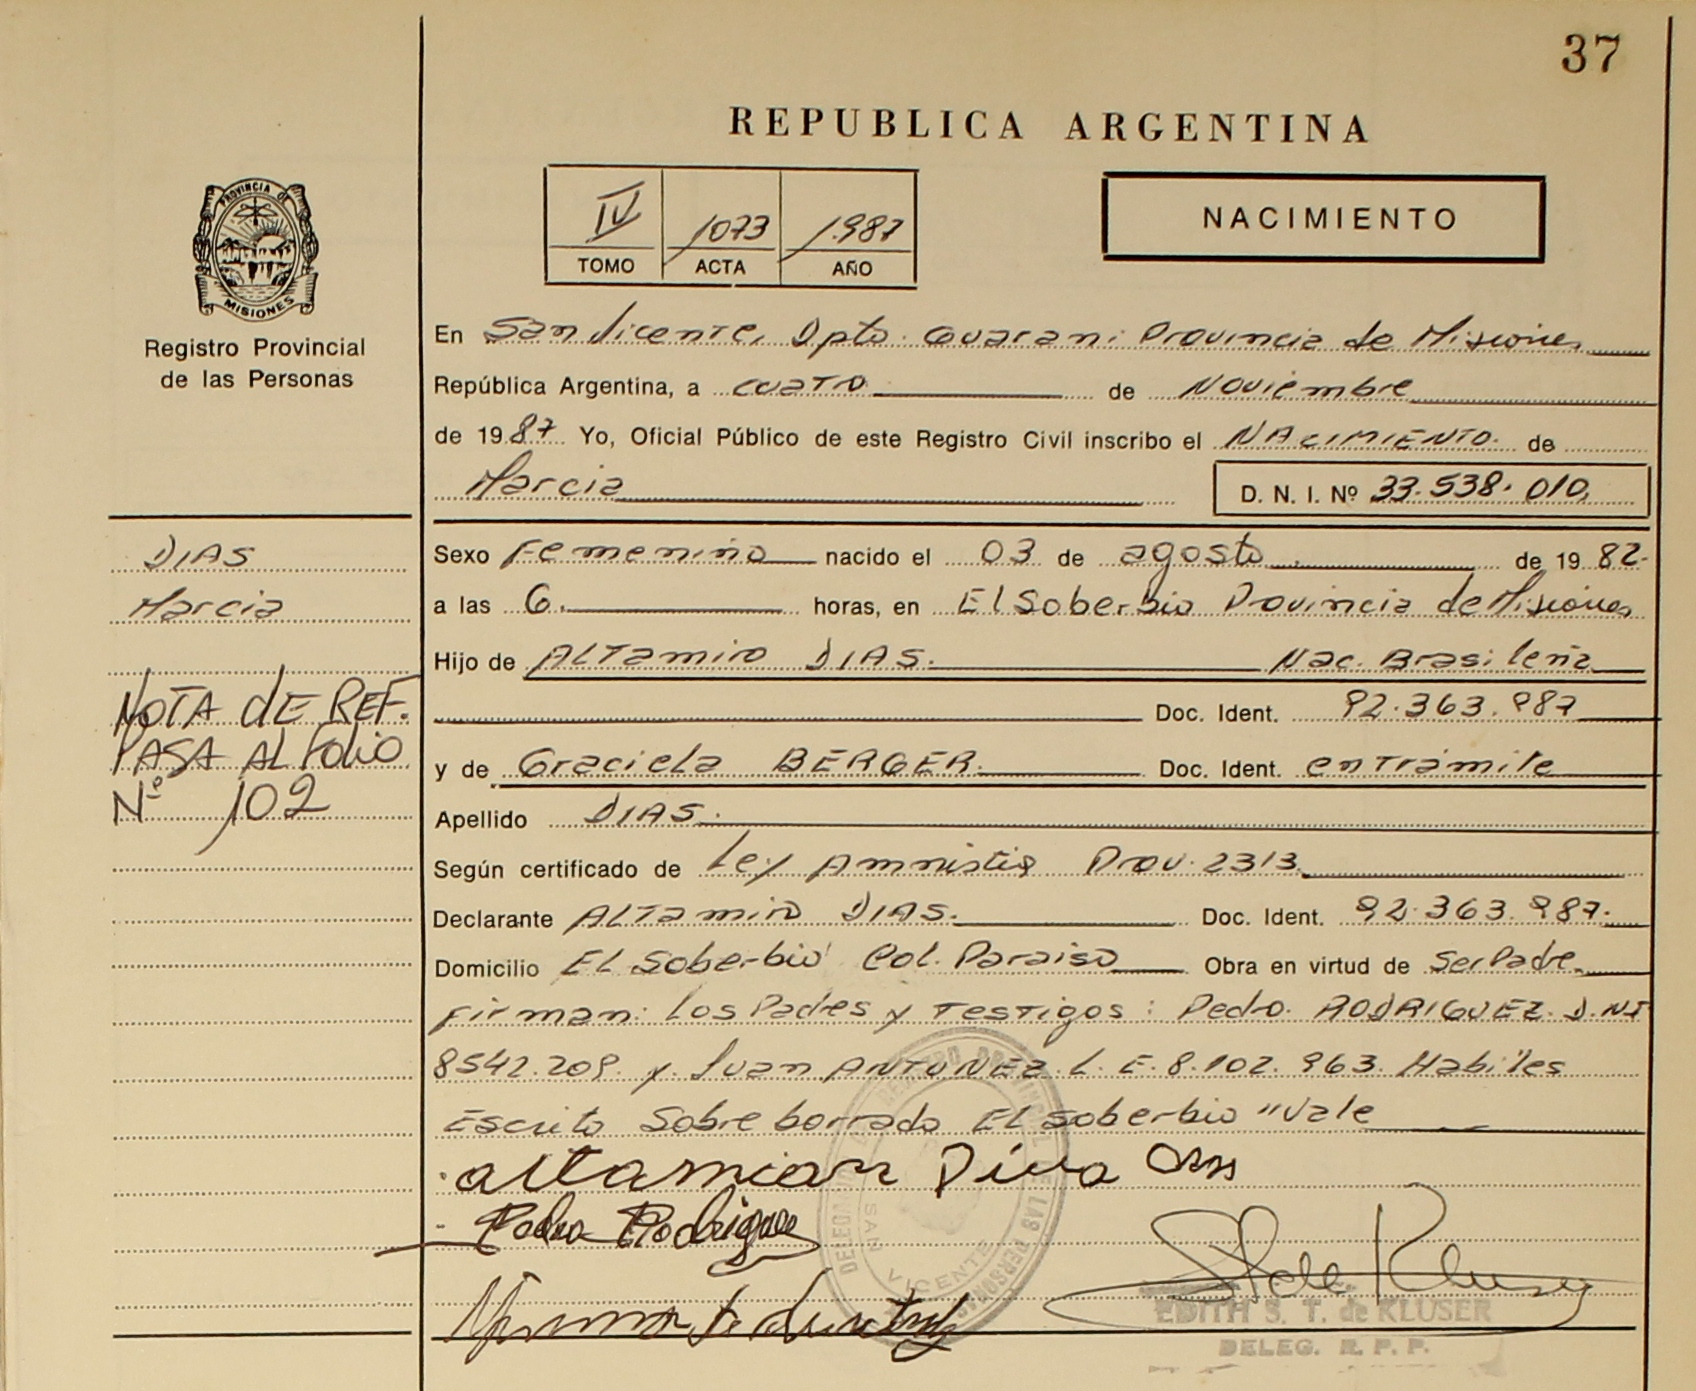 37
REPUBLICA ARGENTINA
IV 1073 1987
TOMO ACTA AÑO
NACIMIENTO
PROVINCIA DE
MISIONES
Registro Provincial
de las Personas
En San Vicente, Dpto. Guarani Provincia de Misiones
República Argentina, a cuatro de Noviembre
de 1987 Yo, Oficial Público de este Registro Civil inscribo el NACIMIENTO de
Marcia D. N. I. Nº 33.538.010
DIAS
Marcia
NOTA DE REF.
PASA AL FOLIO
Nº 102
Sexo Femenino nacido el 03 de agosto de 1982
a las 6. horas, en El Soberbio Provincia de Misiones
Hijo de ALTamiro DIAS. Nac. Brasileña
Doc. Ident. 92.363.987
y de Graciela BERGER. Doc. Ident. en Tramite
Apellido DIAS.
Según certificado de Ley Amnistia Prov. 2313
Declarante ALTamiro DIAS. Doc. Ident. 92.363.987.
Domicilio El Soberbio Col. Paraiso Obra en virtud de Ser Padre
Firman: Los Padres y Testigos: Pedro RODRIGUEZ D.NI
8542.209. y Juan ANTUNEZ L.E. 8.102.963. Habiles
Escrito Sobre borrado El Soberbio "Vale
Pedro Rodriguez
REGISTRO PROVINCIAL DE LAS PERSONAS
SAN VICENTE
S T de Kluser
EDITH S. T. de KLUSER
DELEG. R. P. P.